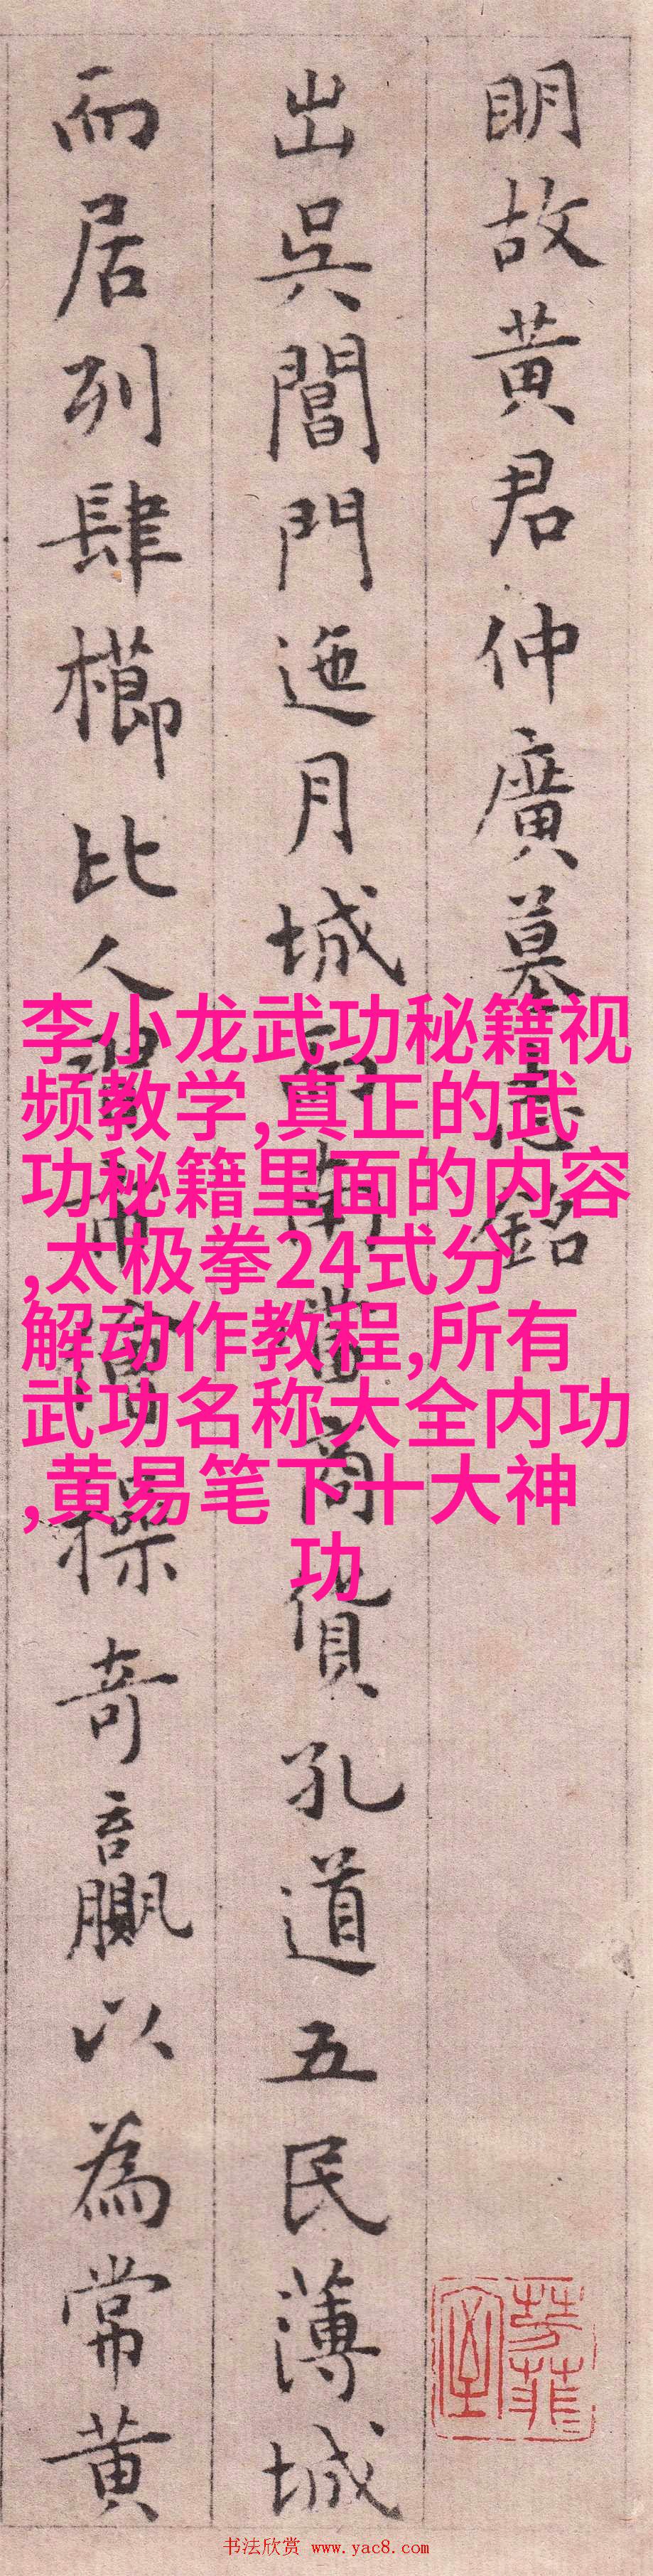 明故黄君仲廣墓志銘
出吳閶門迤月城而南當商貨孔道五民薄城
而居列肆櫛比人習市儈操奇贏以為常黄
李小龙武功秘籍视
频教学,真正的武
功秘籍里面的内容
,太极拳24式分
解动作教程,所有
武功名称大全内功
,黄易笔下十大神
功
书法欣赏 www.yac8.com